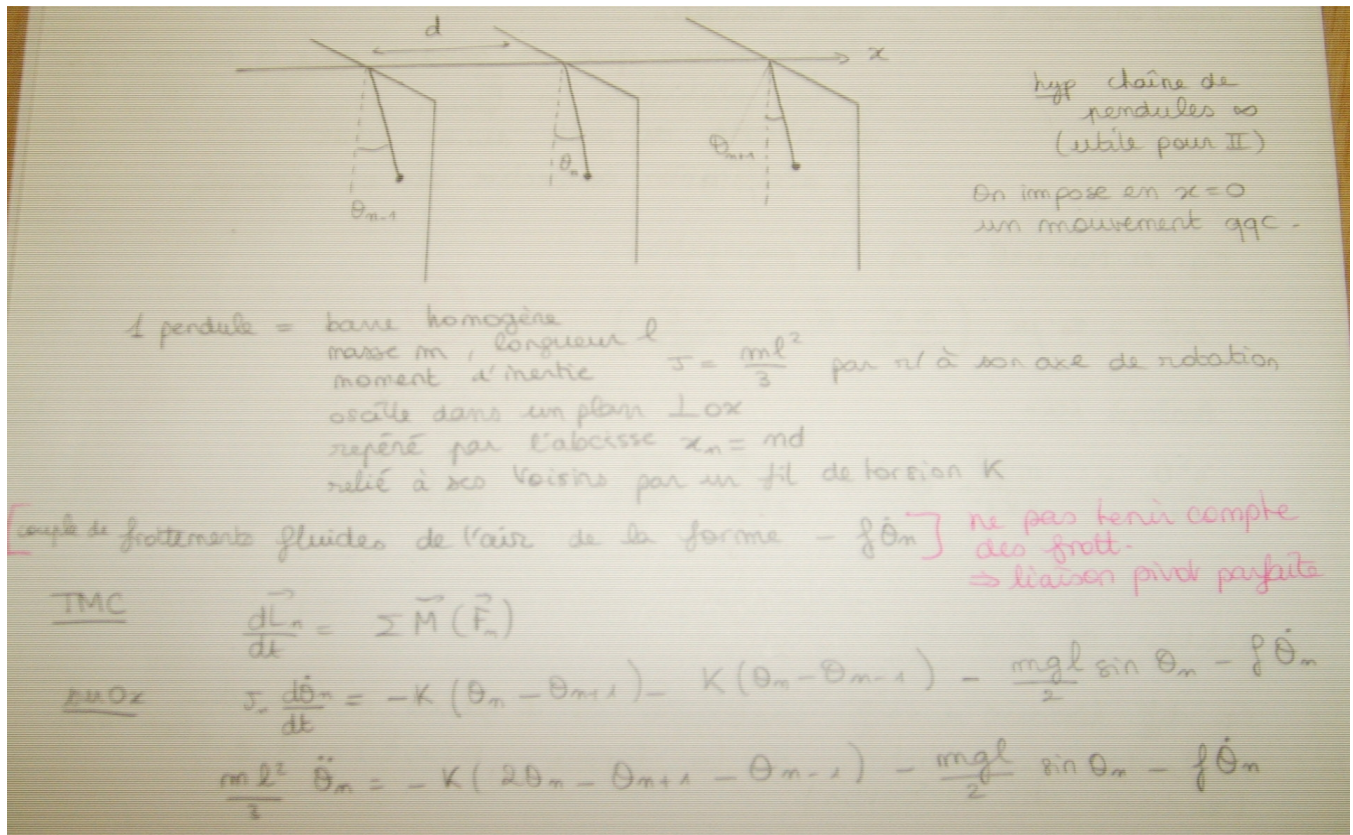 d
x
θn-1
θn
θn+1
hyp chaîne de
pendules ∞
(utile pour II)
On impose en x=0
un mouvement qqc.
1 pendule = barre homogène
masse m, longueur l
moment d'inertie J = ml²/3 par r/ à son axe de rotation
oscille dans un plan ⊥ ox
repéré par l'abcisse xn = nd
relié à ses voisins par un fil de torsion K
[couple de frottements fluides de l'air de la forme - f θ̇n]
ne pas tenir compte
des frott.
⇒ liaison pivot parfaite
TMC dL⃗n/dt = Σ M⃗ (F⃗n)
J. dθ̇n/dt = -K (θn - θn+1) - K(θn - θn-1) - mgl/2 sin θn - f θ̇n
ml²/3 θ̈n = -K (2θn - θn+1 - θn-1) - mgl/2 sin θn - f θ̇n